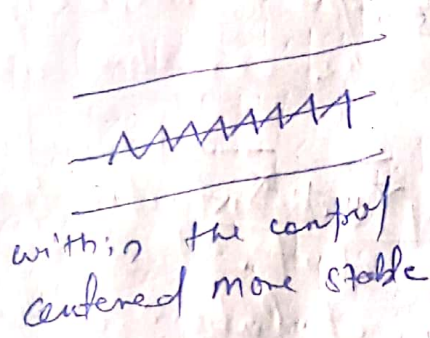 within the control
centered more stable